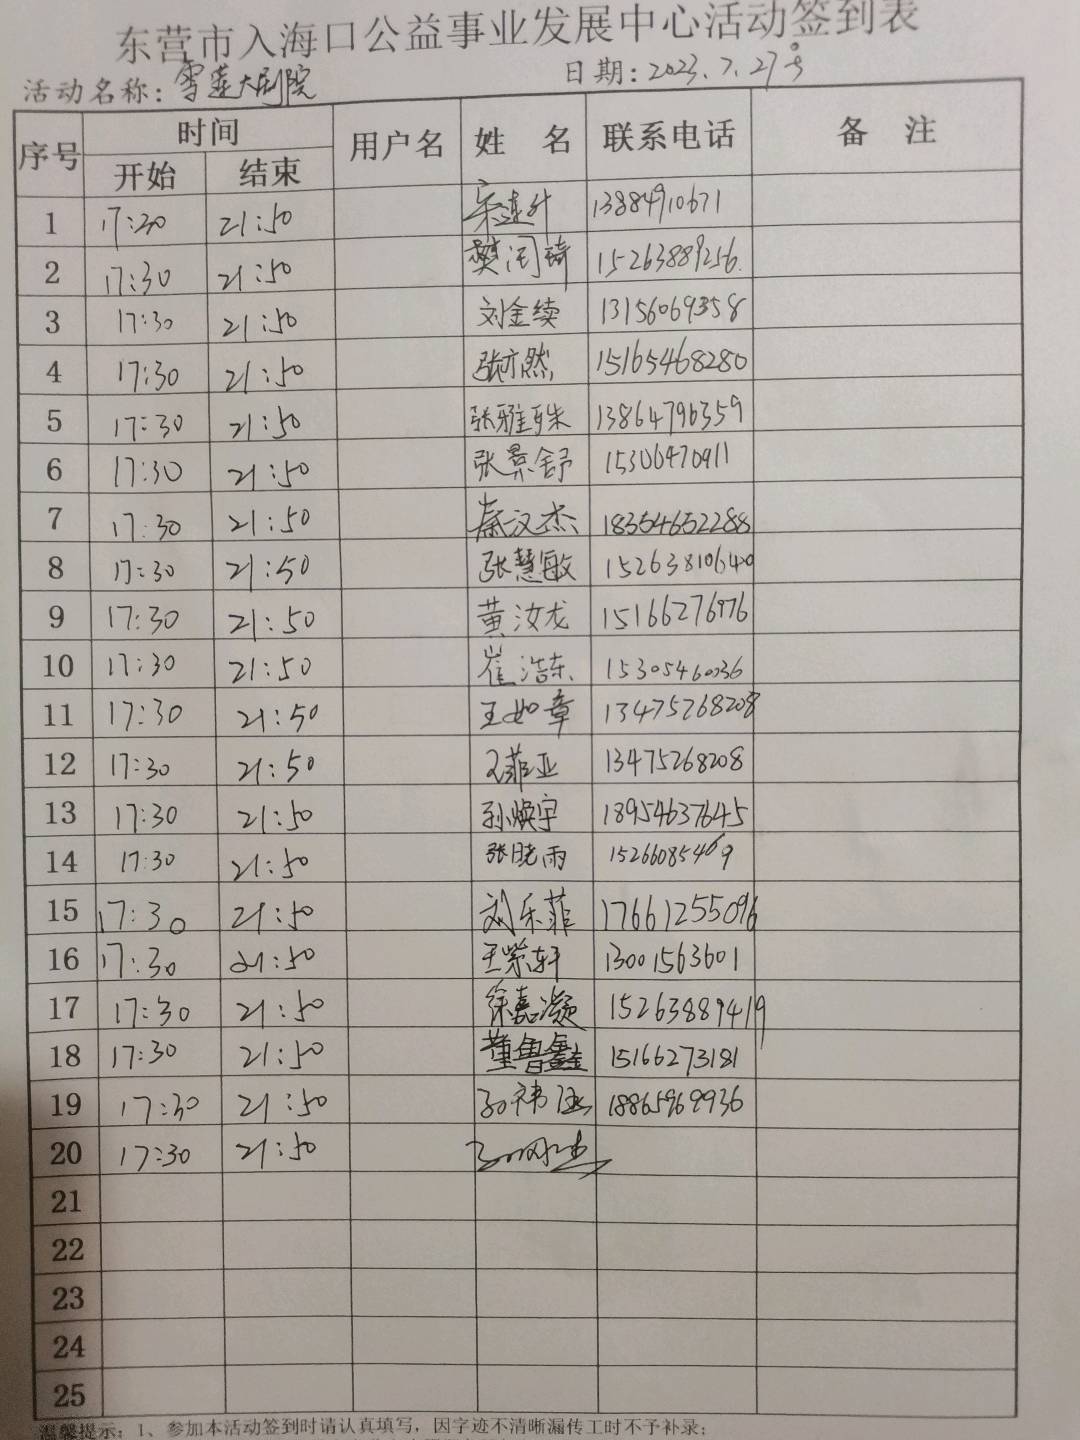 东营市入海口公益事业发展中心活动签到表
活动名称：雪莲大剧院 日期：2023.7.27号
序号 时间 用户名 姓 名 联系电话 备 注
开始 结束
1 17:30 21:50 宋连升 13884910671
2 17:30 21:50 樊闰琦 15263889256
3 17:30 21:50 刘金续 13156069358
4 17:30 21:50 张亦然 15165468280
5 17:30 21:50 张雅殊 13864796359
6 17:30 21:50 张景舒 15306470911
7 17:30 21:50 秦汉杰 18354652288
8 17:30 21:50 张慧敏 15263810640
9 17:30 21:50 黄汝龙 15166276976
10 17:30 21:50 崔浩东 15305460036
11 17:30 21:50 王如章 13475268208
12 17:30 21:50 王菲亚 13475268208
13 17:30 21:50 孙焕宇 18954637645
14 17:30 21:50 张晓雨 15266085469
15 17:30 21:50 刘乐菲 17661255096
16 17:30 21:50 王荣轩 13001563601
17 17:30 21:50 徐嘉凝 15263889419
18 17:30 21:50 董鲁鑫 15166273181
19 17:30 21:50 18865969936
20 17:30 21:50
21
22
23
24
25
温馨提示：1、参加本活动签到时请认真填写，因字迹不清晰漏传工时不予补录；